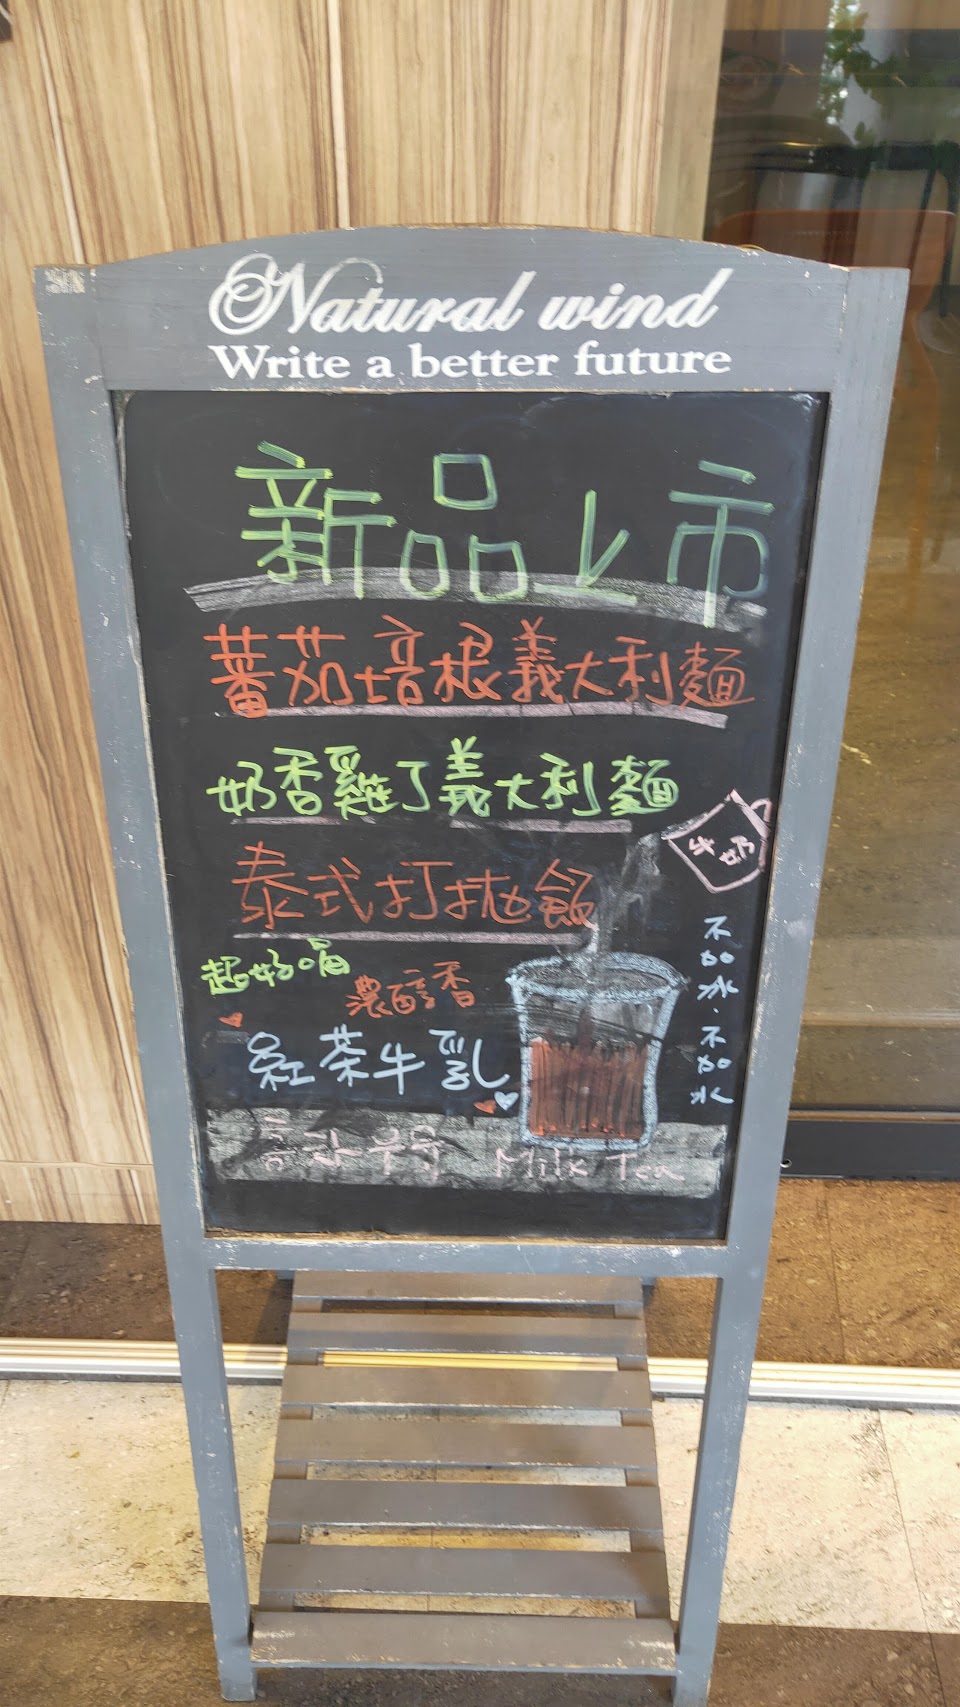 Natural wind
Write a better future
新品上市
蕃茄培根義大利麵
奶香雞丁義大利麵
牛奶
泰式打拋飯
超好喝
濃醇香
紅茶牛乳
不加冰.不加水
홍차우유 Milk Tea